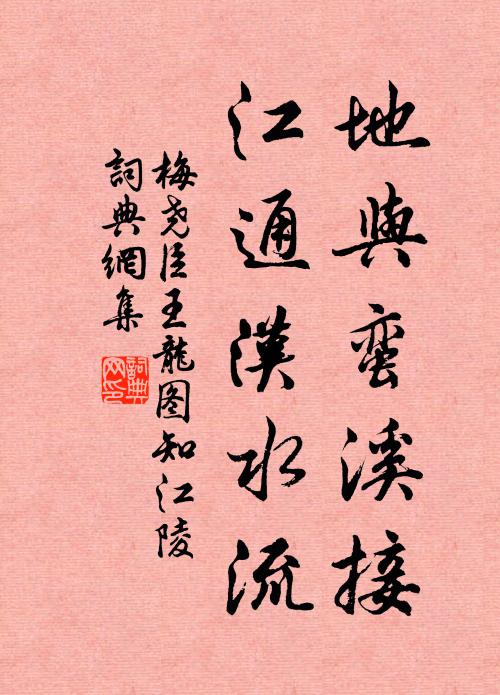 地與蛮溪接
江通漢水流
梅尧臣王龍图知江陵
詞典網集
詞典
网印